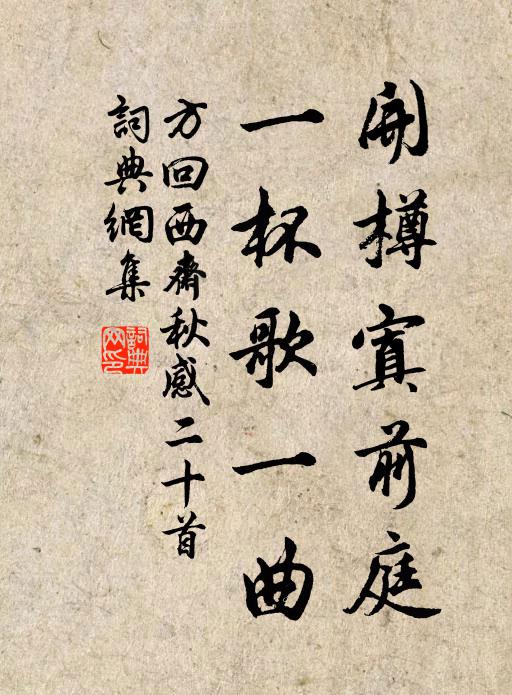 開樽寘前庭
一杯歌一曲
方回西齋秋感二十首
詞典網集
詞典網印